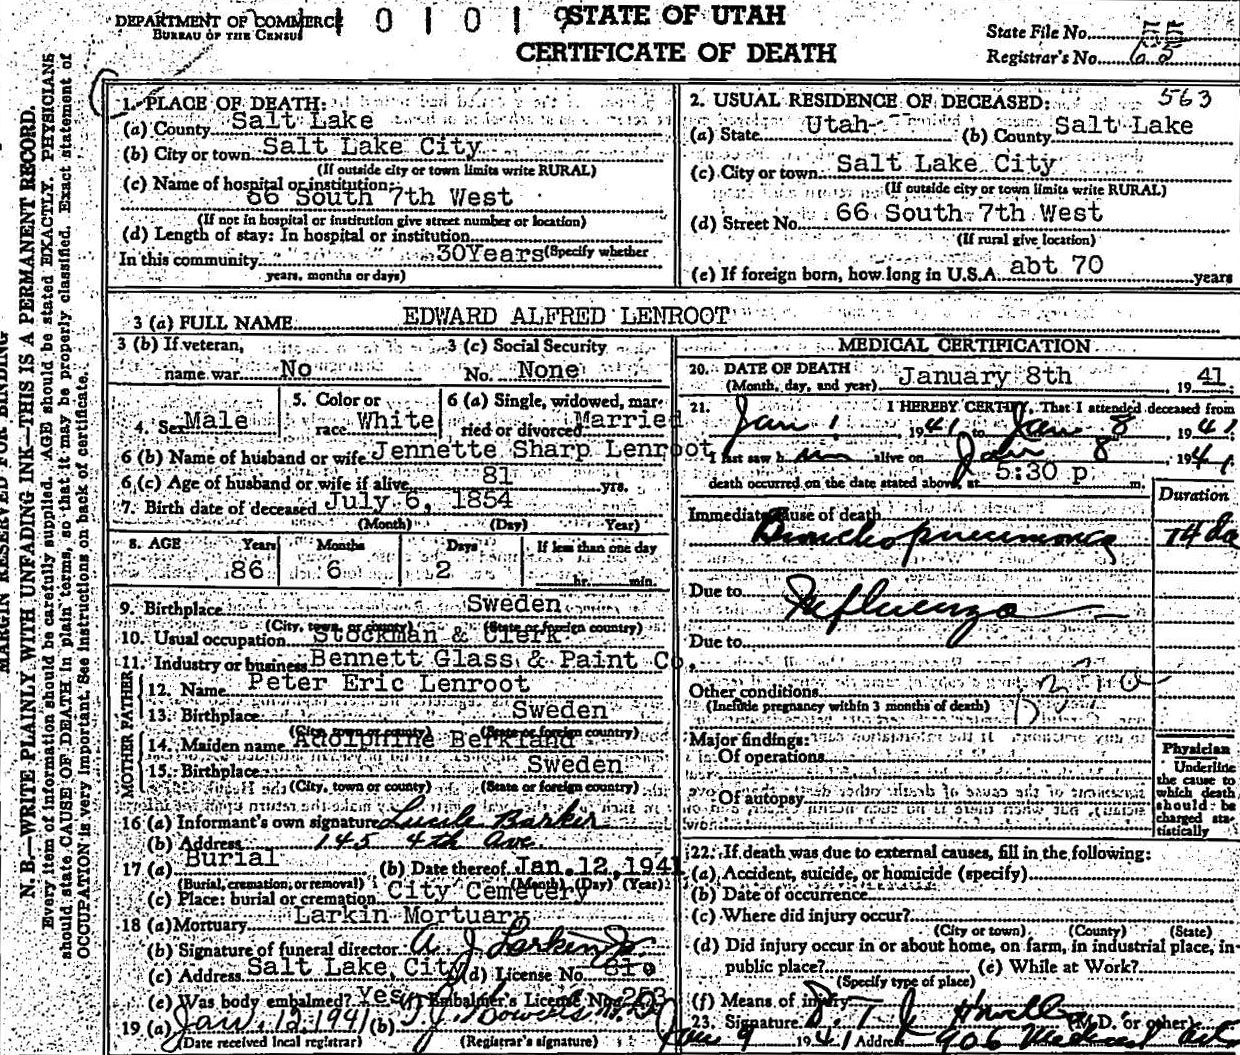 DEPARTMENT OF COMMERCE
BUREAU OF THE CENSUS
1 0 1 0 1 9
STATE OF UTAH
CERTIFICATE OF DEATH
State File No. 55
Registrar's No. 65
MARGIN RESERVED FOR BINDING
N. B.—WRITE PLAINLY WITH UNFADING INK—THIS IS A PERMANENT RECORD.
Every item of information should be carefully supplied. AGE should be stated EXACTLY. PHYSICIANS
should state CAUSE OF DEATH in plain terms, so that it may be properly classified. Exact statement of
OCCUPATION is very important. See instructions on back of certificate.
1. PLACE OF DEATH:
(a) County Salt Lake
(b) City or town Salt Lake City
(If outside city or town limits write RURAL)
(c) Name of hospital or institution:
66 South 7th West
(If not in hospital or institution give street number or location)
(d) Length of stay: In hospital or institution
In this community 30Years (Specify whether
years, months or days)
2. USUAL RESIDENCE OF DECEASED: 563
(a) State Utah (b) County Salt Lake
(c) City or town Salt Lake City
(If outside city or town limits write RURAL)
(d) Street No. 66 South 7th West
(If rural give location)
(e) If foreign born, how long in U.S.A. abt 70 years
3 (a) FULL NAME EDWARD ALFRED LENROOT
3 (b) If veteran, 3 (c) Social Security
name war No No. None
4. Sex Male 5. Color or race White 6 (a) Single, widowed, married or divorced Married
6 (b) Name of husband or wife Jennette Sharp Lenroot
6 (c) Age of husband or wife if alive 81 yrs.
7. Birth date of deceased July 6, 1854
(Month) (Day) (Year)
8. AGE Years Months Days If less than one day
86 6 2 hr. min.
9. Birthplace Sweden
(City, town, or county) (State or foreign country)
10. Usual occupation Stockman & Clerk
11. Industry or business Bennett Glass & Paint Co.
FATHER
12. Name Peter Eric Lenroot
13. Birthplace Sweden
(City, town or county) (State or foreign country)
MOTHER
14. Maiden name Adolphine Berkland
15. Birthplace Sweden
(City, town or county) (State or foreign country)
16 (a) Informant's own signature Lucile Barker
(b) Address 145 4th Ave.
17 (a) Burial (b) Date thereof Jan. 12, 1941
(Burial, cremation, or removal) (Month) (Day) (Year)
(c) Place: burial or cremation City Cemetery
18 (a) Mortuary Larkin Mortuary
(b) Signature of funeral director A J Larkin Jr.
(c) Address Salt Lake City (d) License No.
(e) Was body embalmed? Yes (f) Embalmer's License No. 253
19 (a) Jan. 12, 1941 (b)
(Date received local registrar) (Registrar's signature)
MEDICAL CERTIFICATION
20. DATE OF DEATH
(Month, day, and year) January 8th, 1941.
21. I HEREBY CERTIFY, That I attended deceased from
Jan 1, 1941 to Jan 8, 1941
I last saw him alive on Jan 8, 1941,
death occurred on the date stated above, at 5:30 p m.
Duration
Immediate cause of death
Bronchopneumonia 14 da
Due to Influenza
Due to
Other conditions
(Include pregnancy within 3 months of death)
Major findings:
Of operations
Of autopsy
Physician
Underline
the cause to
which death
should be
charged sta-
tistically
22. If death was due to external causes, fill in the following:
(a) Accident, suicide, or homicide (specify)
(b) Date of occurrence
(c) Where did injury occur?
(City or town) (County) (State)
(d) Did injury occur in or about home, on farm, in industrial place, in
public place? (e) While at Work?
(Specify type of place)
(f) Means of injury
23. Signature (M.D. or other)
Jan 9 1941 Address 906 Medical Arts